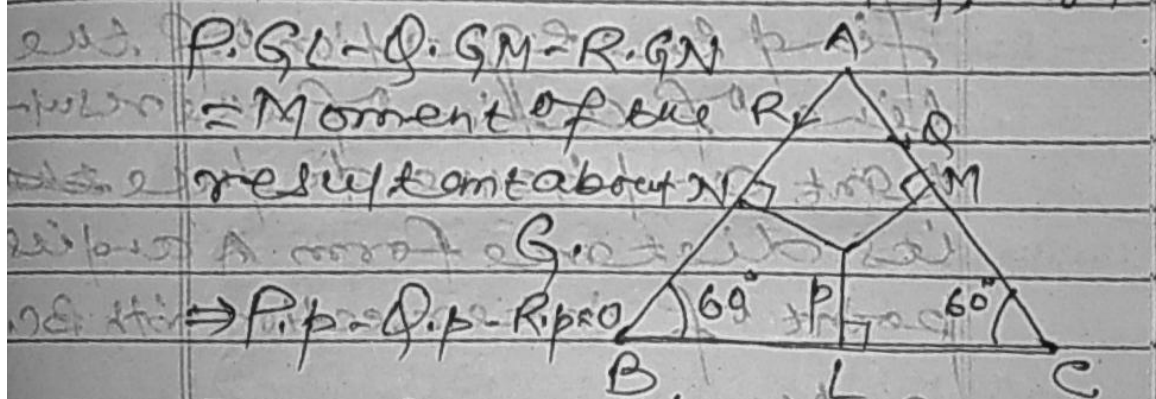 P.GL-Q.GM-R.GN
=Moment of the
resultant about
G.
⇒P.p-Q.p-R.p=0
A
R
Q
N
M
60°
P
60°
B
L
C